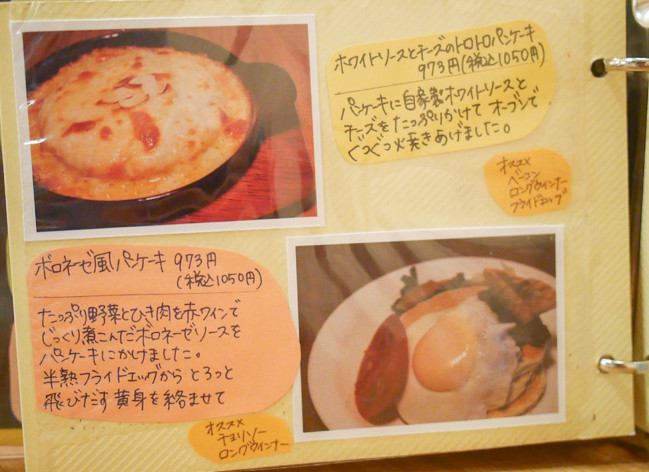 ホワイトソースとチーズのトロトロパンケーキ
973円(税込1050円)
パンケーキに自家製ホワイトソースと
チーズをたっぷりかけて オーブンで
ぐつぐつ火焼きあげました。
オススメ
ベーコン
ロングウインナー
フライドエッグ
ボロネーゼ風パンケーキ 973円
(税込1050円)
たっぷり野菜とひき肉を赤ワインで
じっくり煮こんだボロネーゼソースを
パンケーキにかけました。
半熟フライドエッグから とろっと
飛びだす 黄身を絡ませて
オススメ
チョリソー
ロングウインナー